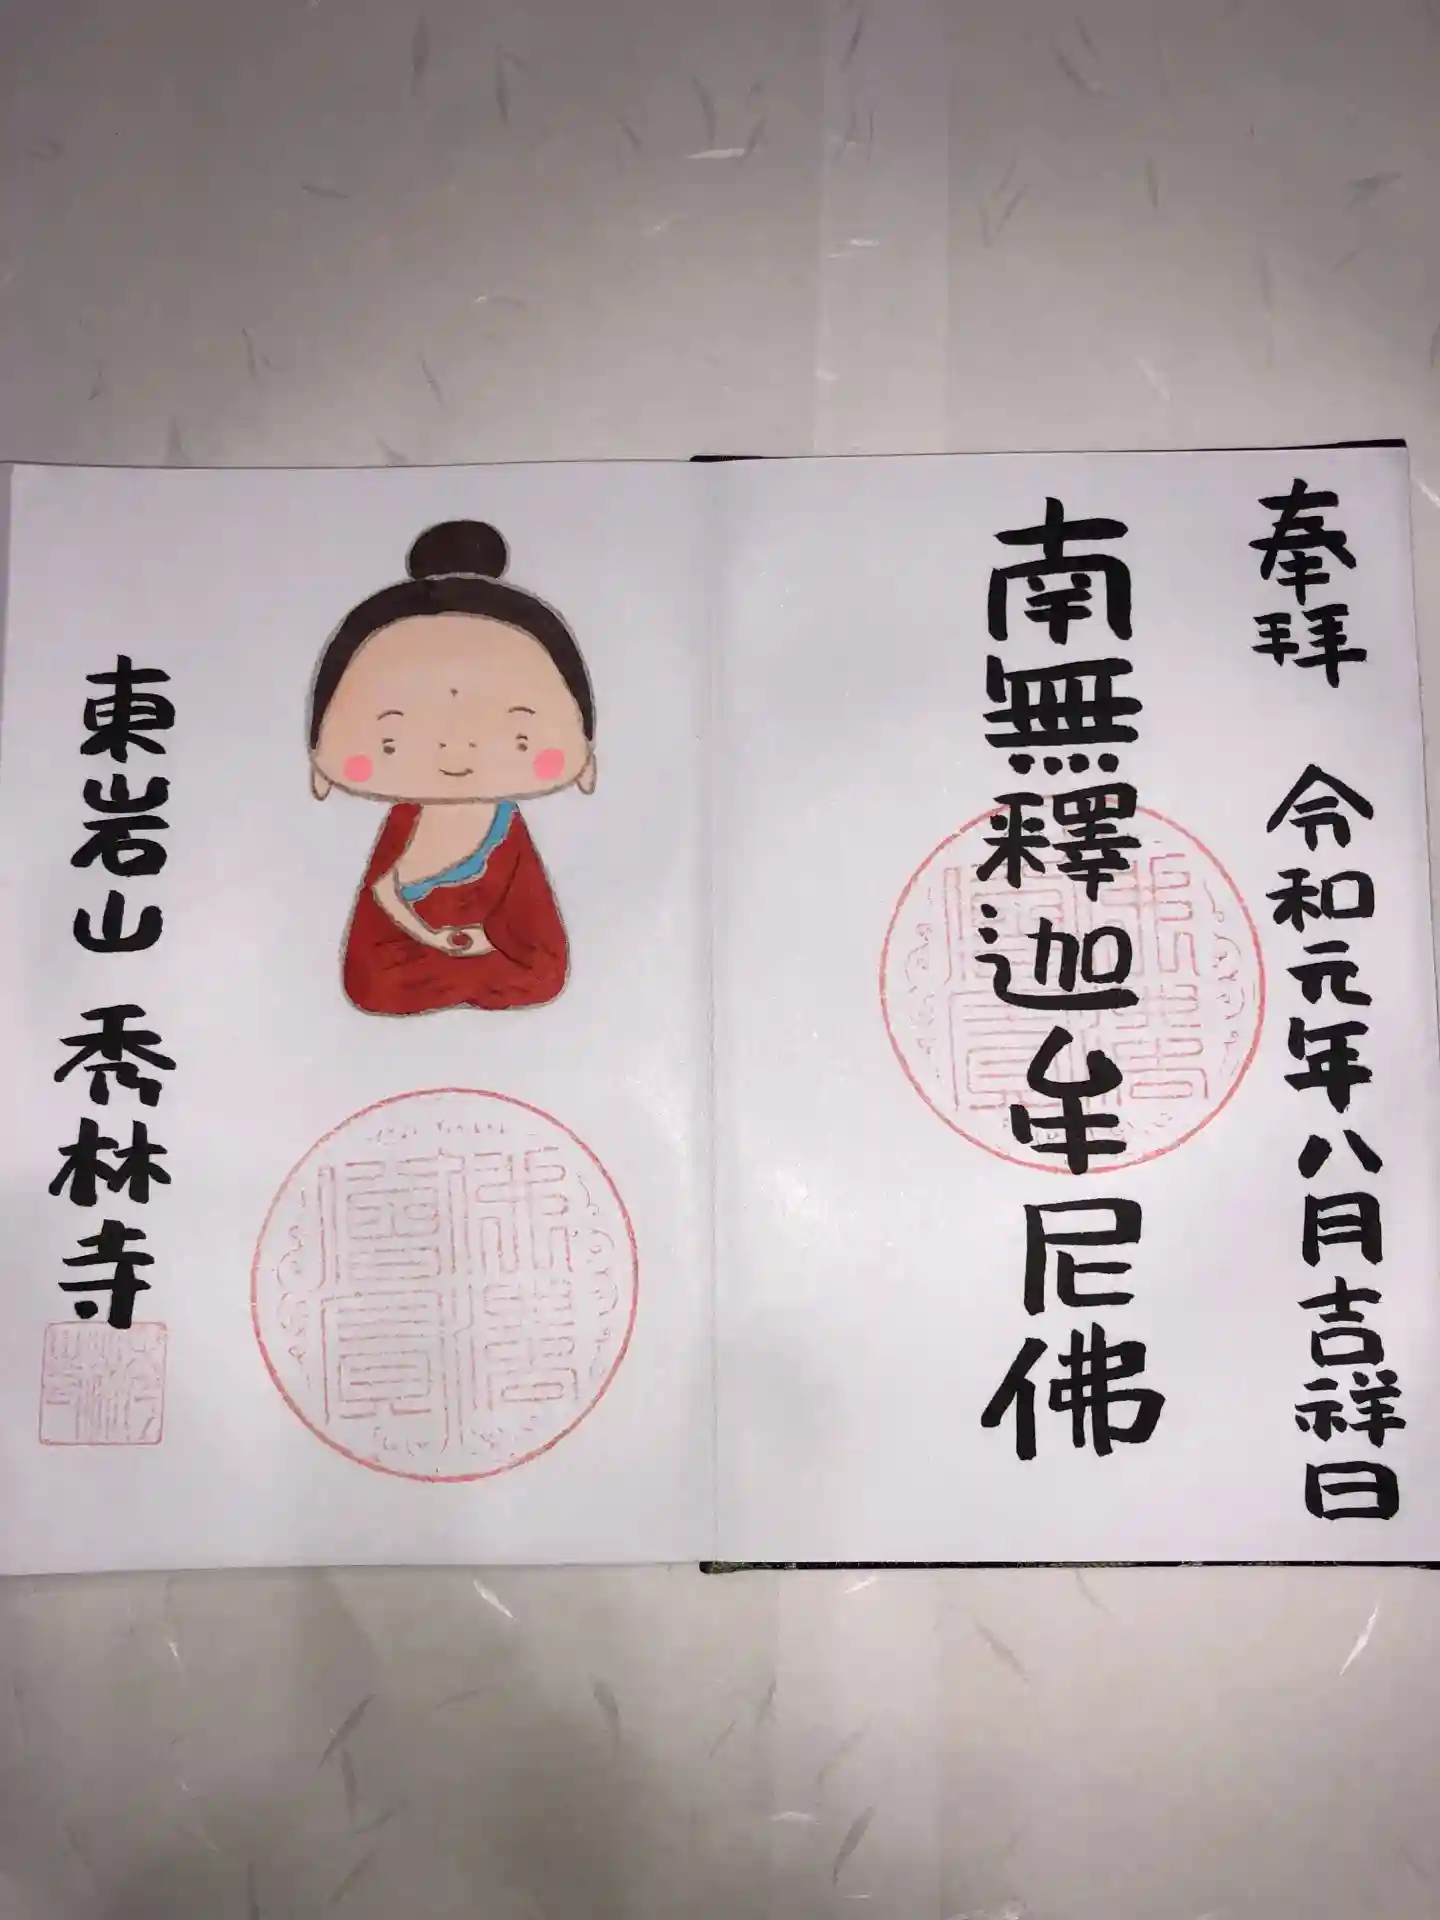 奉拜 令和元年八月吉祥日
南無釋迦牟尼佛
東岩山 秀林寺
佛法僧寶